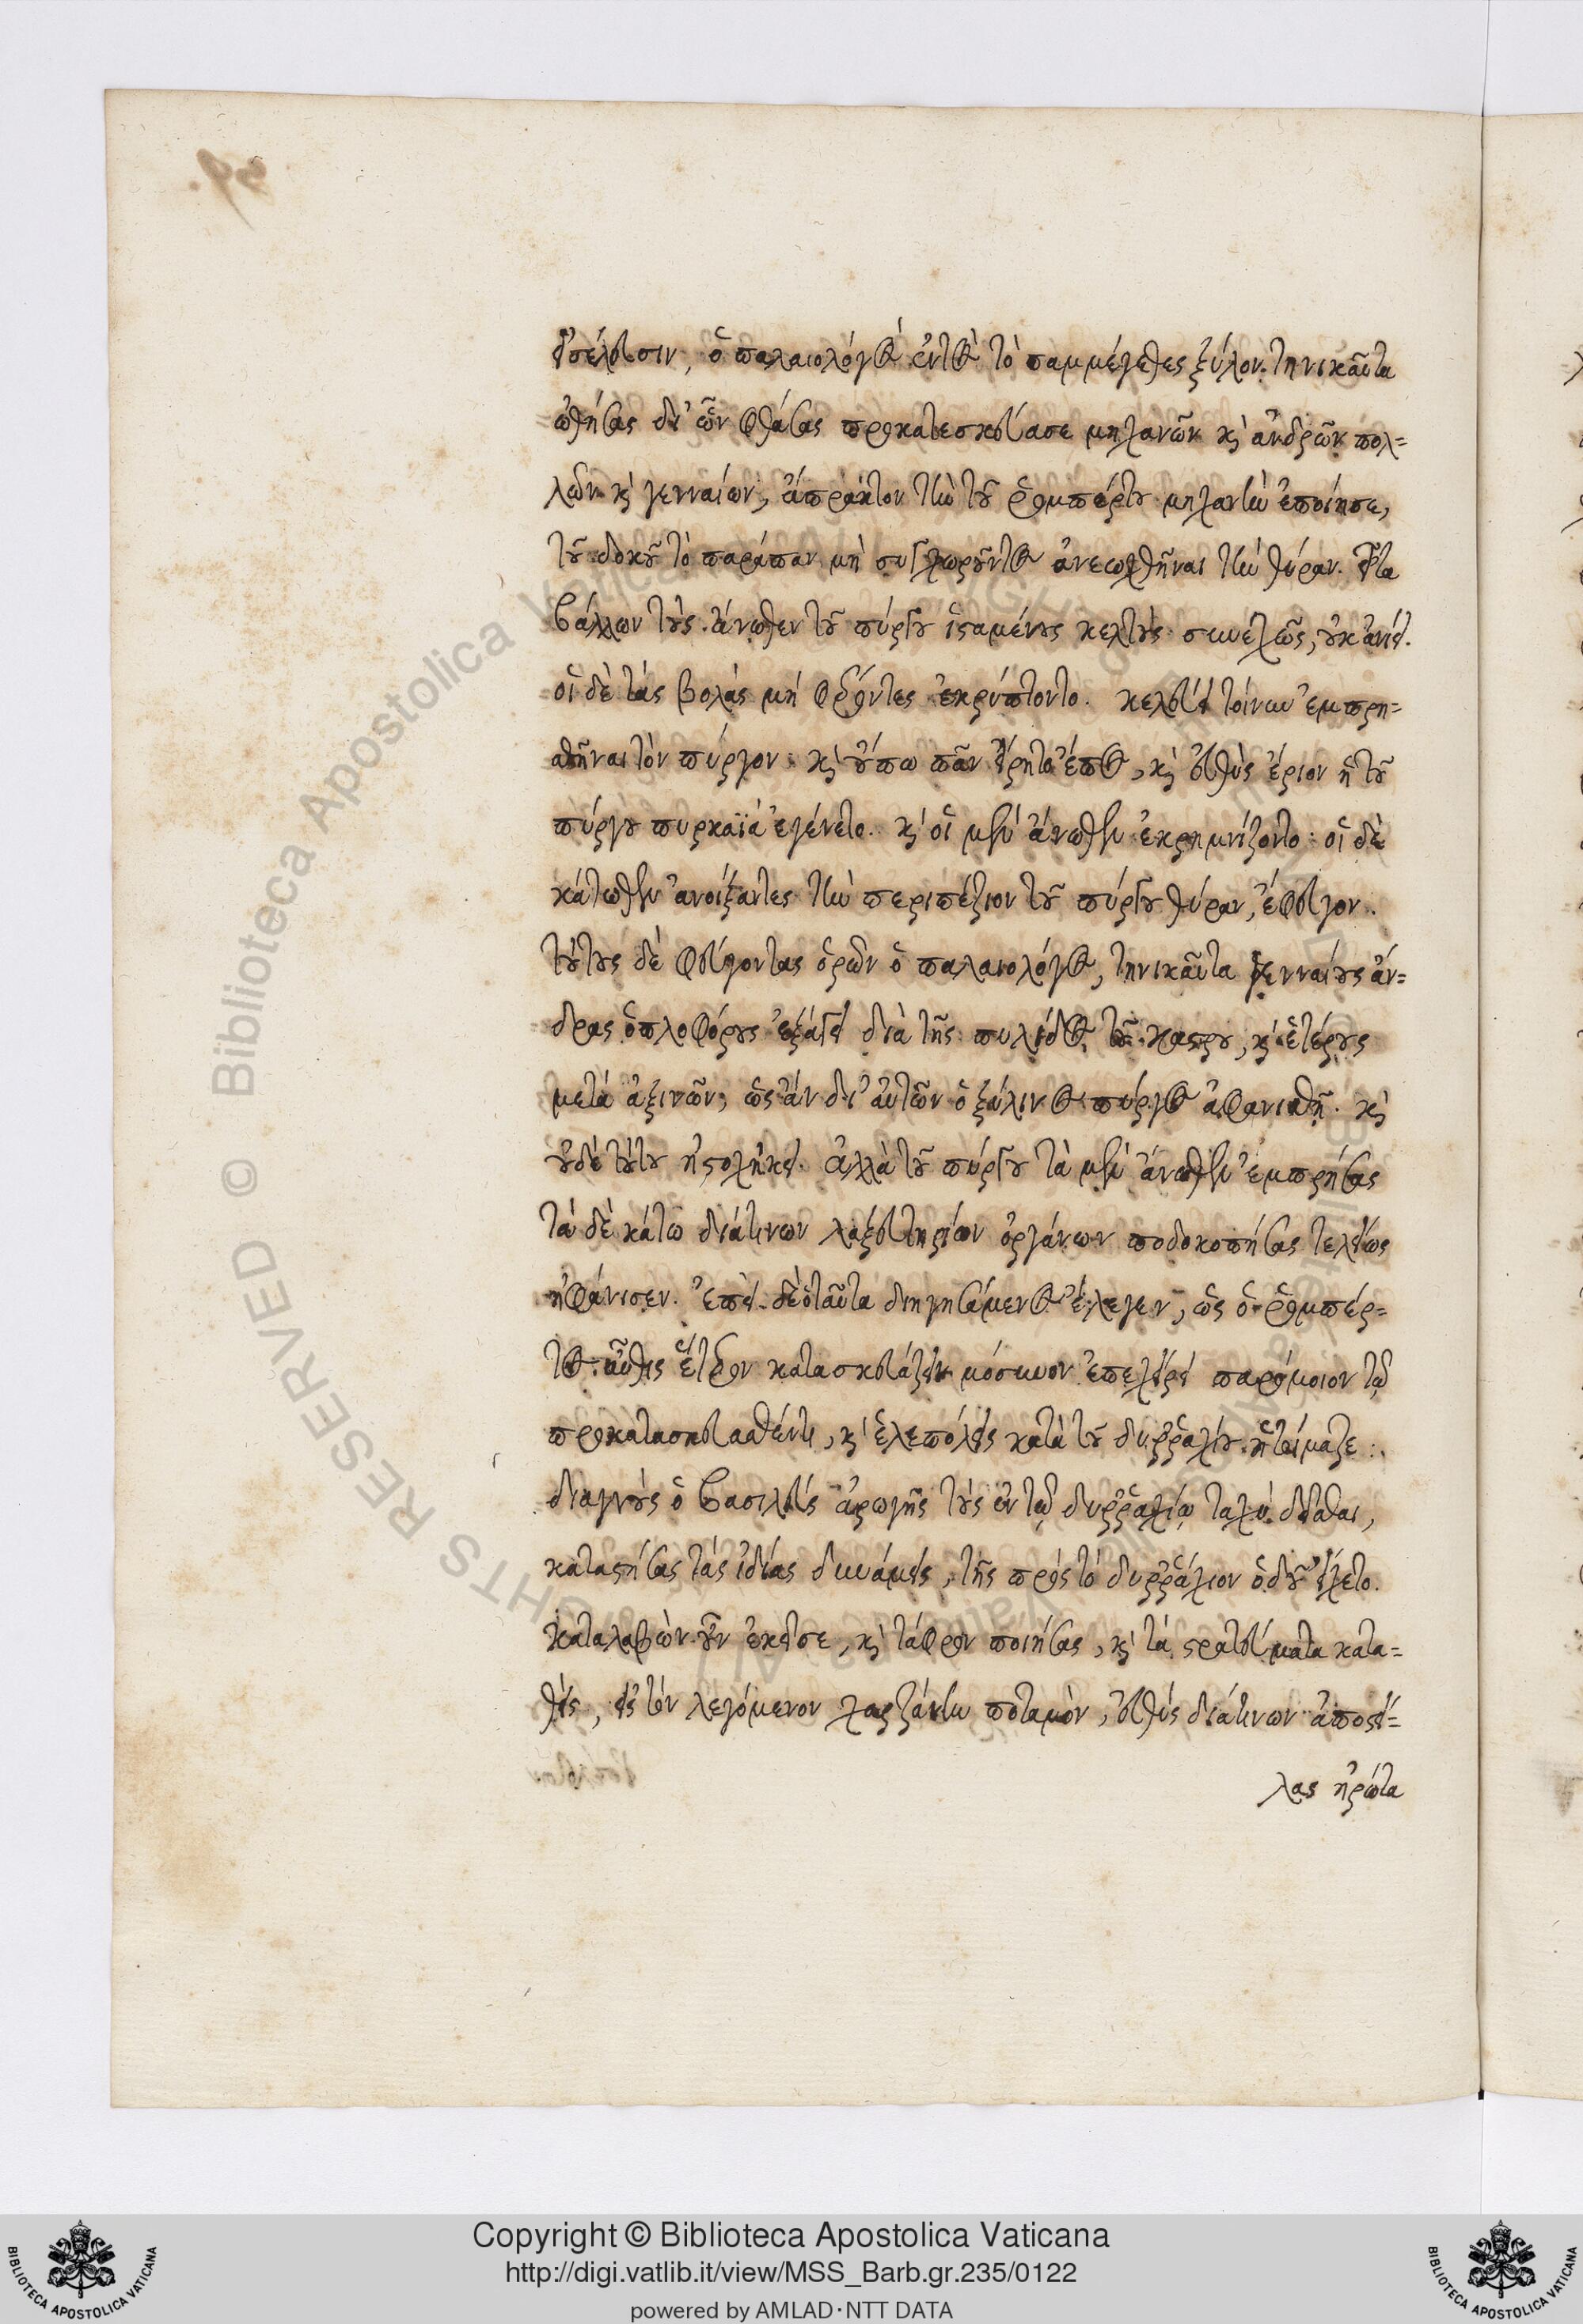 εἰσέλευσιν, ὁ παλαιολόγος ἐντὸς τὸ παμμέγεθες ξύλον τηνικαῦτα
ὠθήσας δι' ὧν φθάσας προκατεσκεύασε μηχανῶν κὶ ἀνδρῶν πολ=
λῶν κὶ γενναίων, ἄπρακτον τὴν τοῦ ῥομπέρτου μηχανὴν ἐποίησε,
τοῦ δοκοῦ τὸ παράπαν μὴ συγχωροῦντος ἀνεωχθῆναι τὴν θύραν. εἶτα
βάλλων τοὺς ἄνωθεν τοῦ πύργου ἱσταμένους κελτοὺς συνεχῶς, οὐκ ἀνίει.
οἱ δὲ τὰς βολὰς μὴ φέροντες ἐκρύπτοντο. κελεύει τοίνυν ἐμπρη=
σθῆναι τὸν πύργον. κὶ οὔπω πᾶν εἴρητο ἔπος, κὶ εὐθὺς ἔργον ἡ τοῦ
πύργου πυρκαϊὰ ἐγένετο. κὶ οἱ μὲν ἄνωθεν ἐκρημνίζοντο· οἱ δὲ
κάτωθεν ἀνοίξαντες τὴν περιπέζιον τοῦ πύργου θύραν, ἔφευγον.
τούτους δὲ φεύγοντας ὁρῶν ὁ παλαιολόγος, τηνικαῦτα γενναίους ἄν=
δρας ὁπλοφόρους ἐξάγει διὰ τῆς πυλίδος τοῦ κάστρου, κὶ ἑτέρους
μετὰ ἀξινῶν, ὡς ἂν δι' αὐτῶν ὁ ξύλινος πύργος ἀφανισθῇ. κὶ
οὐδὲ τούτου ἠστοχήκει. ἀλλὰ τοῦ πύργου τὰ μὲν ἄνωθεν ἐμπρήσας
τὰ δὲ κάτω διά τινων λαξευτηρίων ὀργάνων ποδοκοπήσας τελείως
ἠφάνισεν. ἐπεὶ δὲ ὁ ταῦτα διηγησάμενος ἔλεγεν, ὡς ὁ ῥομπέρ=
τος αὖθις ἕτερον κατασκευάζειν μόσυνον ἐπεχείρει παρόμοιον τῷ
προκατασκευασθέντι, κὶ ἑλεπόλεις κατὰ τοῦ δυρραχίου ἡτοίμαζε·
διαγνοὺς ὁ βασιλεὺς ἀρωγῆς τοὺς ἐν τῷ δυρραχίῳ ταχὺ δεῖσθαι,
καταστήσας τὰς ἰδίας δυνάμεις, τῆς πρὸς τὸ δυρράχιον ὁδοῦ εἴχετο.
καταλαβὼν οὖν ἐκεῖσε, κὶ τάφρον ποιήσας, κὶ τὰ στρατεύματα κατα=
θεὶς, εἰς τὸν λεγόμενον χαρζάνην ποταμὸν, εὐθὺς διά τινων ἀποστεί=
λας ἠρώτα